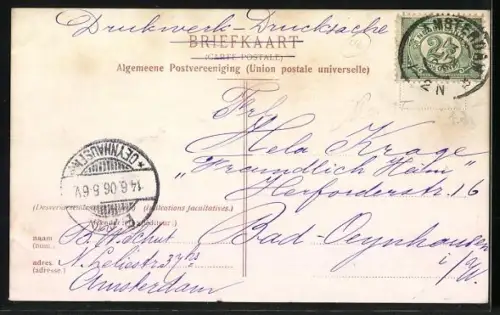 Drukwerk-Drucksache
BRIEFKAART
(CARTE POSTALE)
Algemeene Postvereeniging (Union postale universelle)
AMSTERDAM
2½
2 N
Frl.
Hela Krage
"Freundlich Heim"
Herforderstr. 16
Bad-Oeynhausen
i/W.
OEYNHAUSEN
14.6.06.8-6V.
(indications facultatives.)
naam
(nom).
adres
(adresse.)
N. Leliestr. 37
Amsterdam